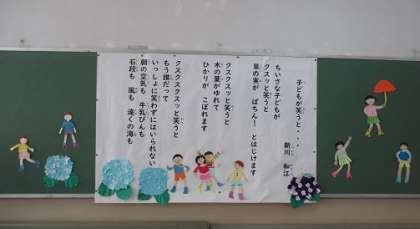 子どもが笑うと・・・
新川 和江
ちいさな子どもが
クスッと笑うと
草の実が ぱちん! とはじけます
クスクスッと笑うと
木の葉がゆれて
ひかりが こぼれます
クスクスクスッと笑うと
もう誰だって
いっしょに笑わずにはいられない
朝の空気も 牛乳びんも
石段も 風も 遠くの海も